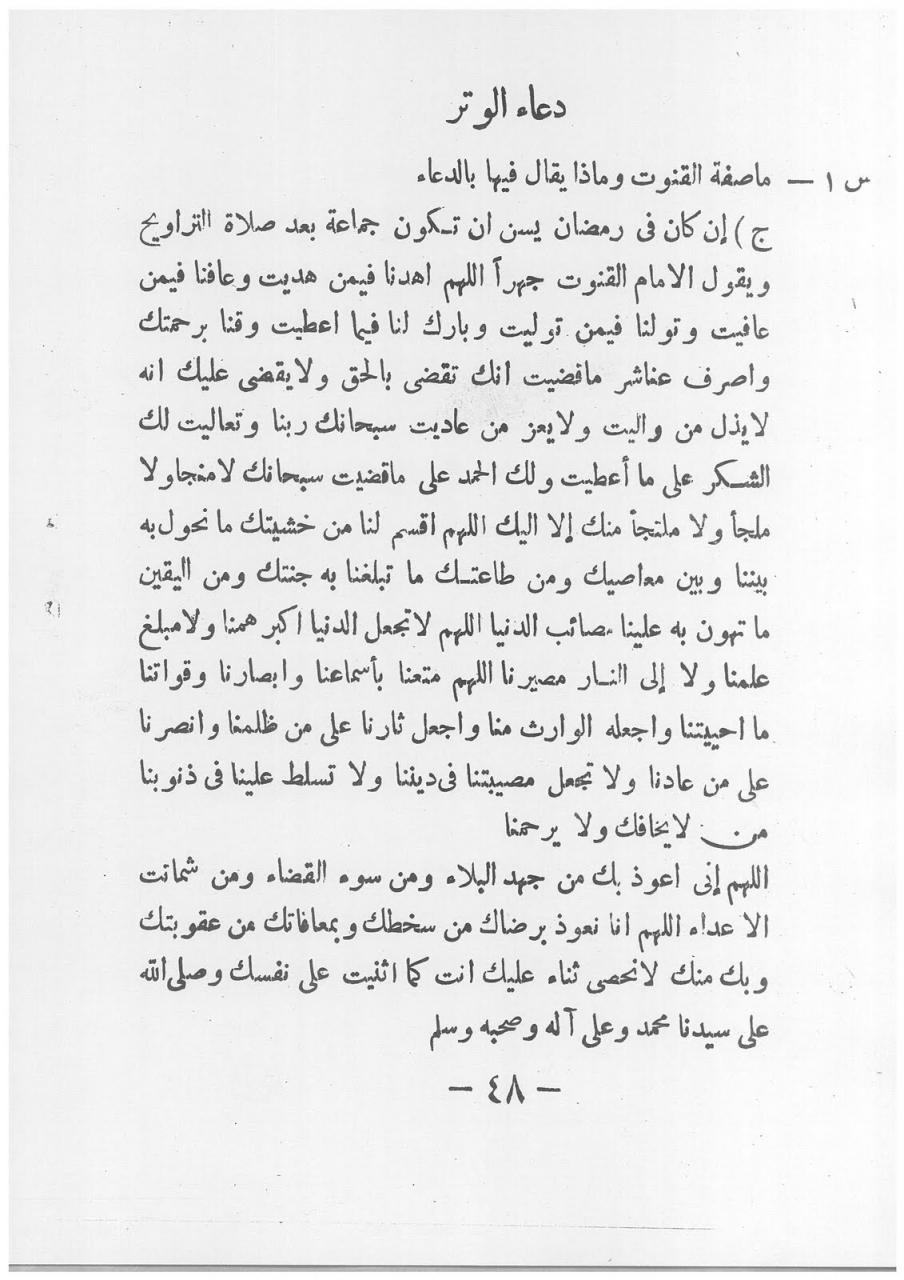 دعاء الوتر
س ١ — ماصفة القنوت وماذا يقال فيها بالدعاء
ج ) إن كان فى رمضان يسن ان تكون جماعة بعد صلاة التراويح
ويقول الامام القنوت جهراً اللهم اهدنا فيمن هديت وعافنا فيمن
عافيت وتولنا فيمن توليت وبارك لنا فيما اعطيت وقنا برحمتك
واصرف عناشر ماقضيت انك تقضى بالحق ولايقضى عليك انه
لايذل من واليت ولايعز من عاديت سبحانك ربنا وتعاليت لك
الشكر على ما أعطيت ولك الحمد على ماقضيت سبحانك لامنجاولا
ملجأ ولا ملتجأ منك إلا اليك اللهم اقسم لنا من خشيتك ما نحول به
بيننا وبين معاصيك ومن طاعتك ما تبلغنا به جنتك ومن اليقين
ما تهون به علينا مصائب الدنيا اللهم لاتجعل الدنيا اكبر همنا ولامبلغ
علمنا ولا إلى النار مصيرنا اللهم متعنا بأسماعنا وابصارنا وقواتنا
ما احييتنا واجعله الوارث منا واجعل ثارنا على من ظلمنا وانصرنا
على من عادنا ولا تجعل مصيبتنا فى ديننا ولا تسلط علينا فى ذنوبنا
من لايخافك ولا يرحمنا
اللهم إنى اعوذ بك من جهد البلاء ومن سوء القضاء ومن شمانت
الاعداء اللهم انا نعوذ برضاك من سخطك وبمعافاتك من عقوبتك
وبك منك لانحصى ثناء عليك انت كما اثنيت على نفسك وصلى الله
على سيدنا محمد وعلى آله وصحبه وسلم
— ٤٨ —